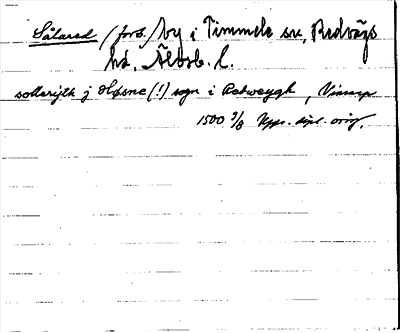 Sålared (förb.) by i Timmele sn, Redvägs
hd, Älvsb. l.
sollerijth j Høsne (!) sogn i Redweygh, Vinsarp
1500 3/8 Upps. dipl. orig.